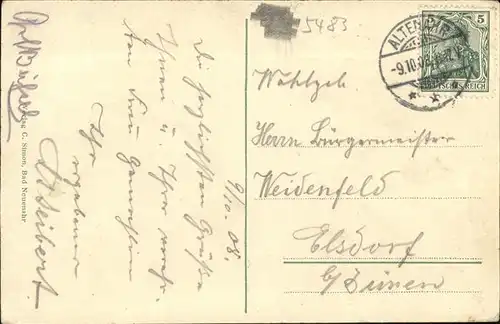 5483
ALTENAHR
-9.10.08
5
DEUTSCHES REICH
Wohlgeb.
Herrn Bürgermeister
Weidenfeld
Elsdorf
b/ Düren
9/10. 08.
Die herzlichsten Grüße
Ihnen u. Ihrer
Frau Gemahlin
Ihr
ergebener
Seibert
C. Simon, Bad Neuenahr